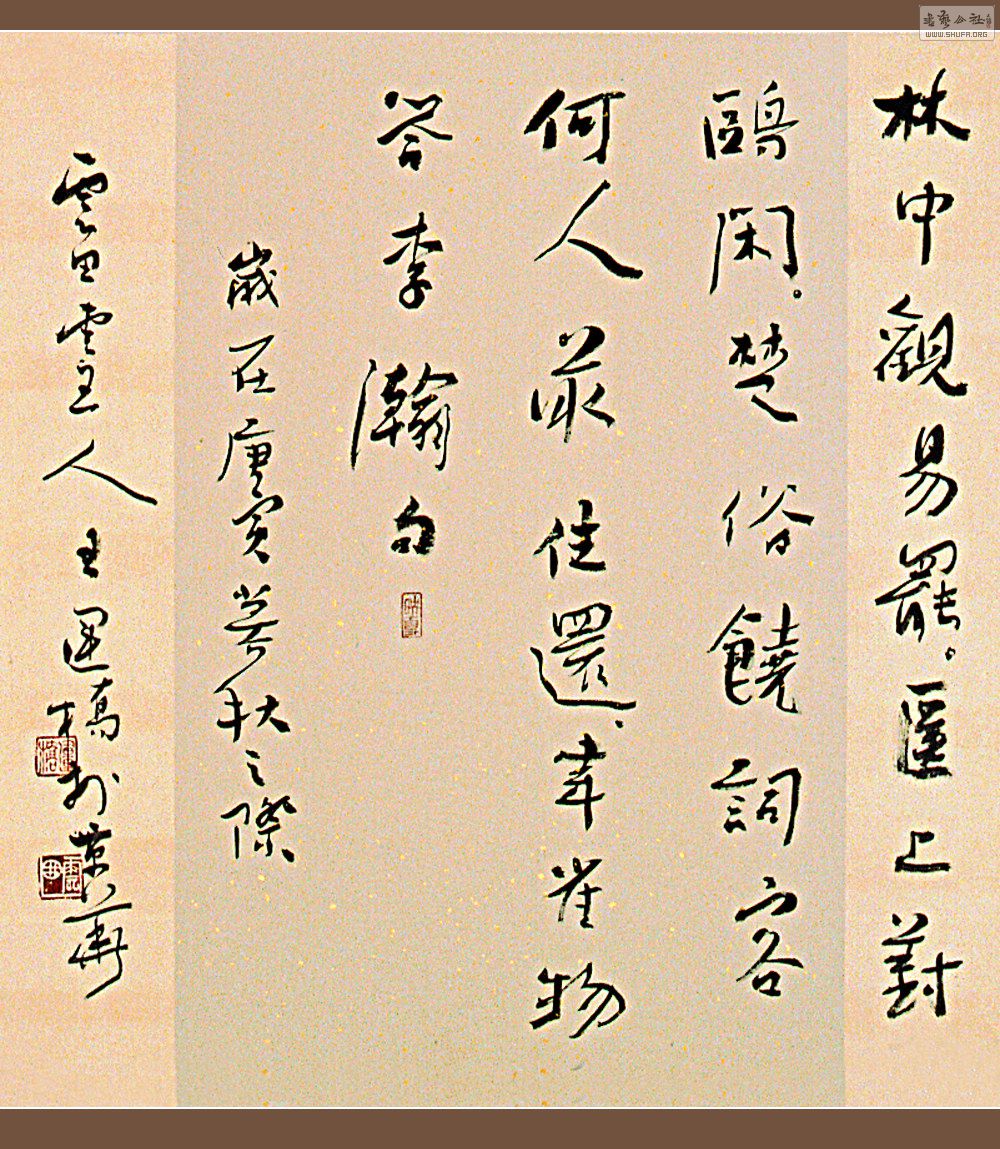 林中觀易罷。匯上對
鷗閑。楚俗饒詞客
何人最往還、韋應物
答李瀚句
歲在庚寅暮秋之際
雲田雲主人王運橋於京華
書藝公社
WWW.SHUFA.ORG